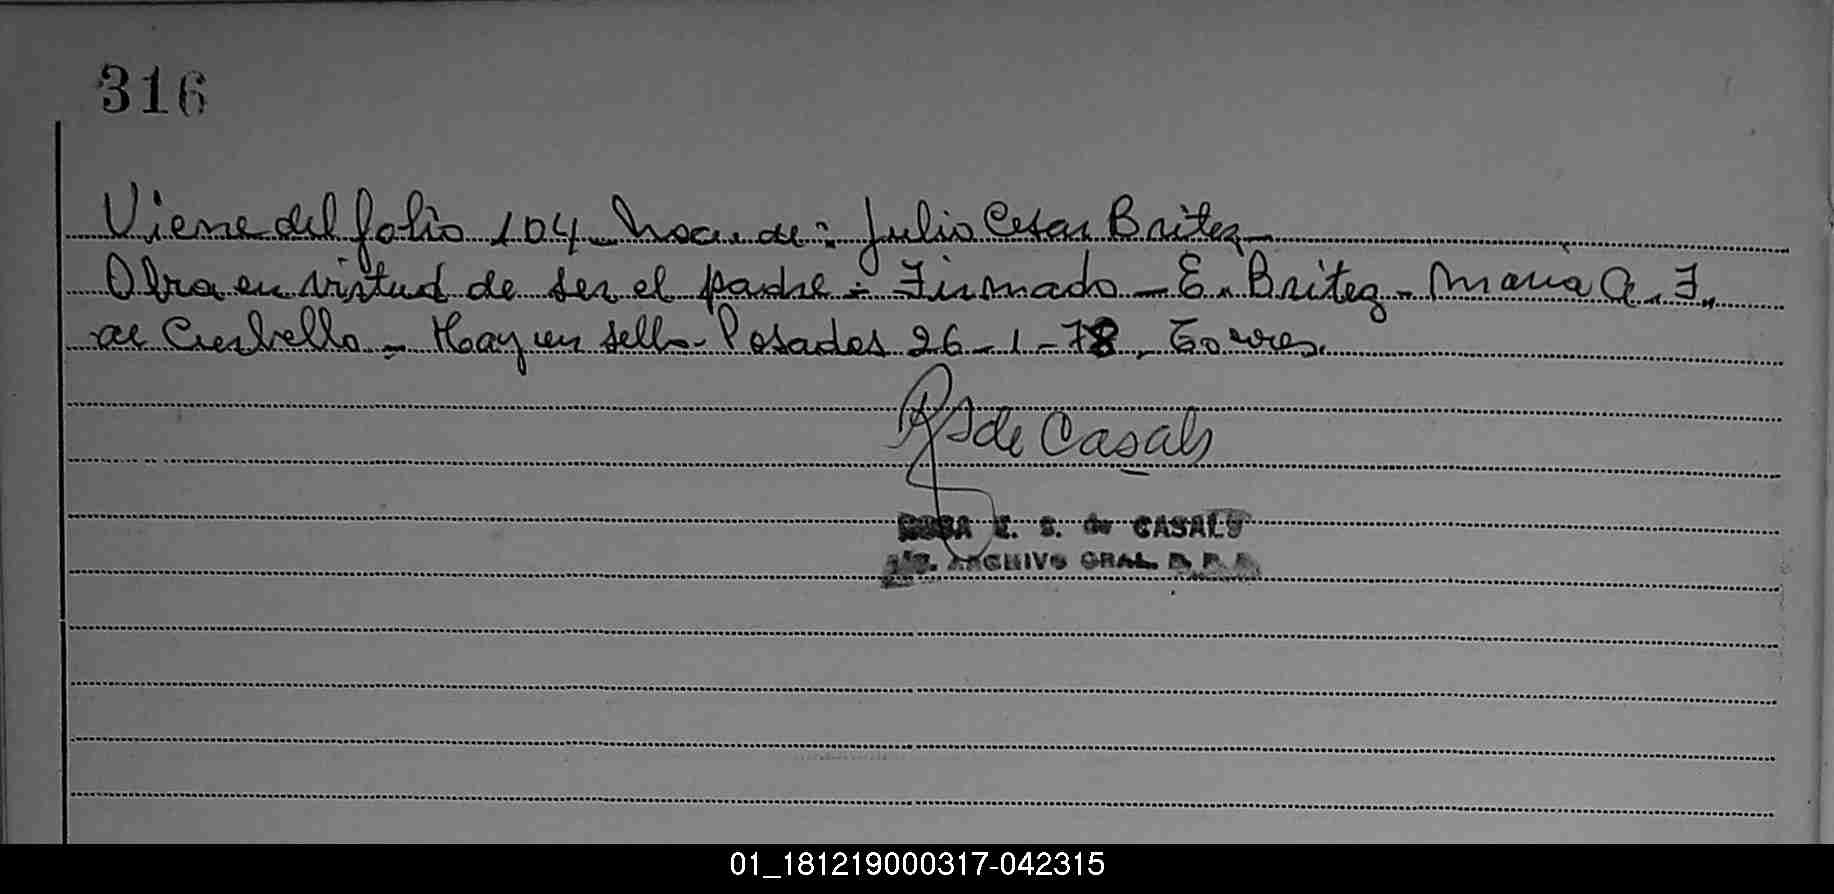 316
Viene del folio 104 - Naci. de: Julio Cesar Britez -
Obra en virtud de ser el padre - Firmado - E. Britez - Maria A. F.
de Curbello - Hay un sello - Posadas 26 - 1 - 78 - Torres.
RS de Casals
ROSA E. S. de CASALS
ARCHIVO GRAL.
01_181219000317-042315